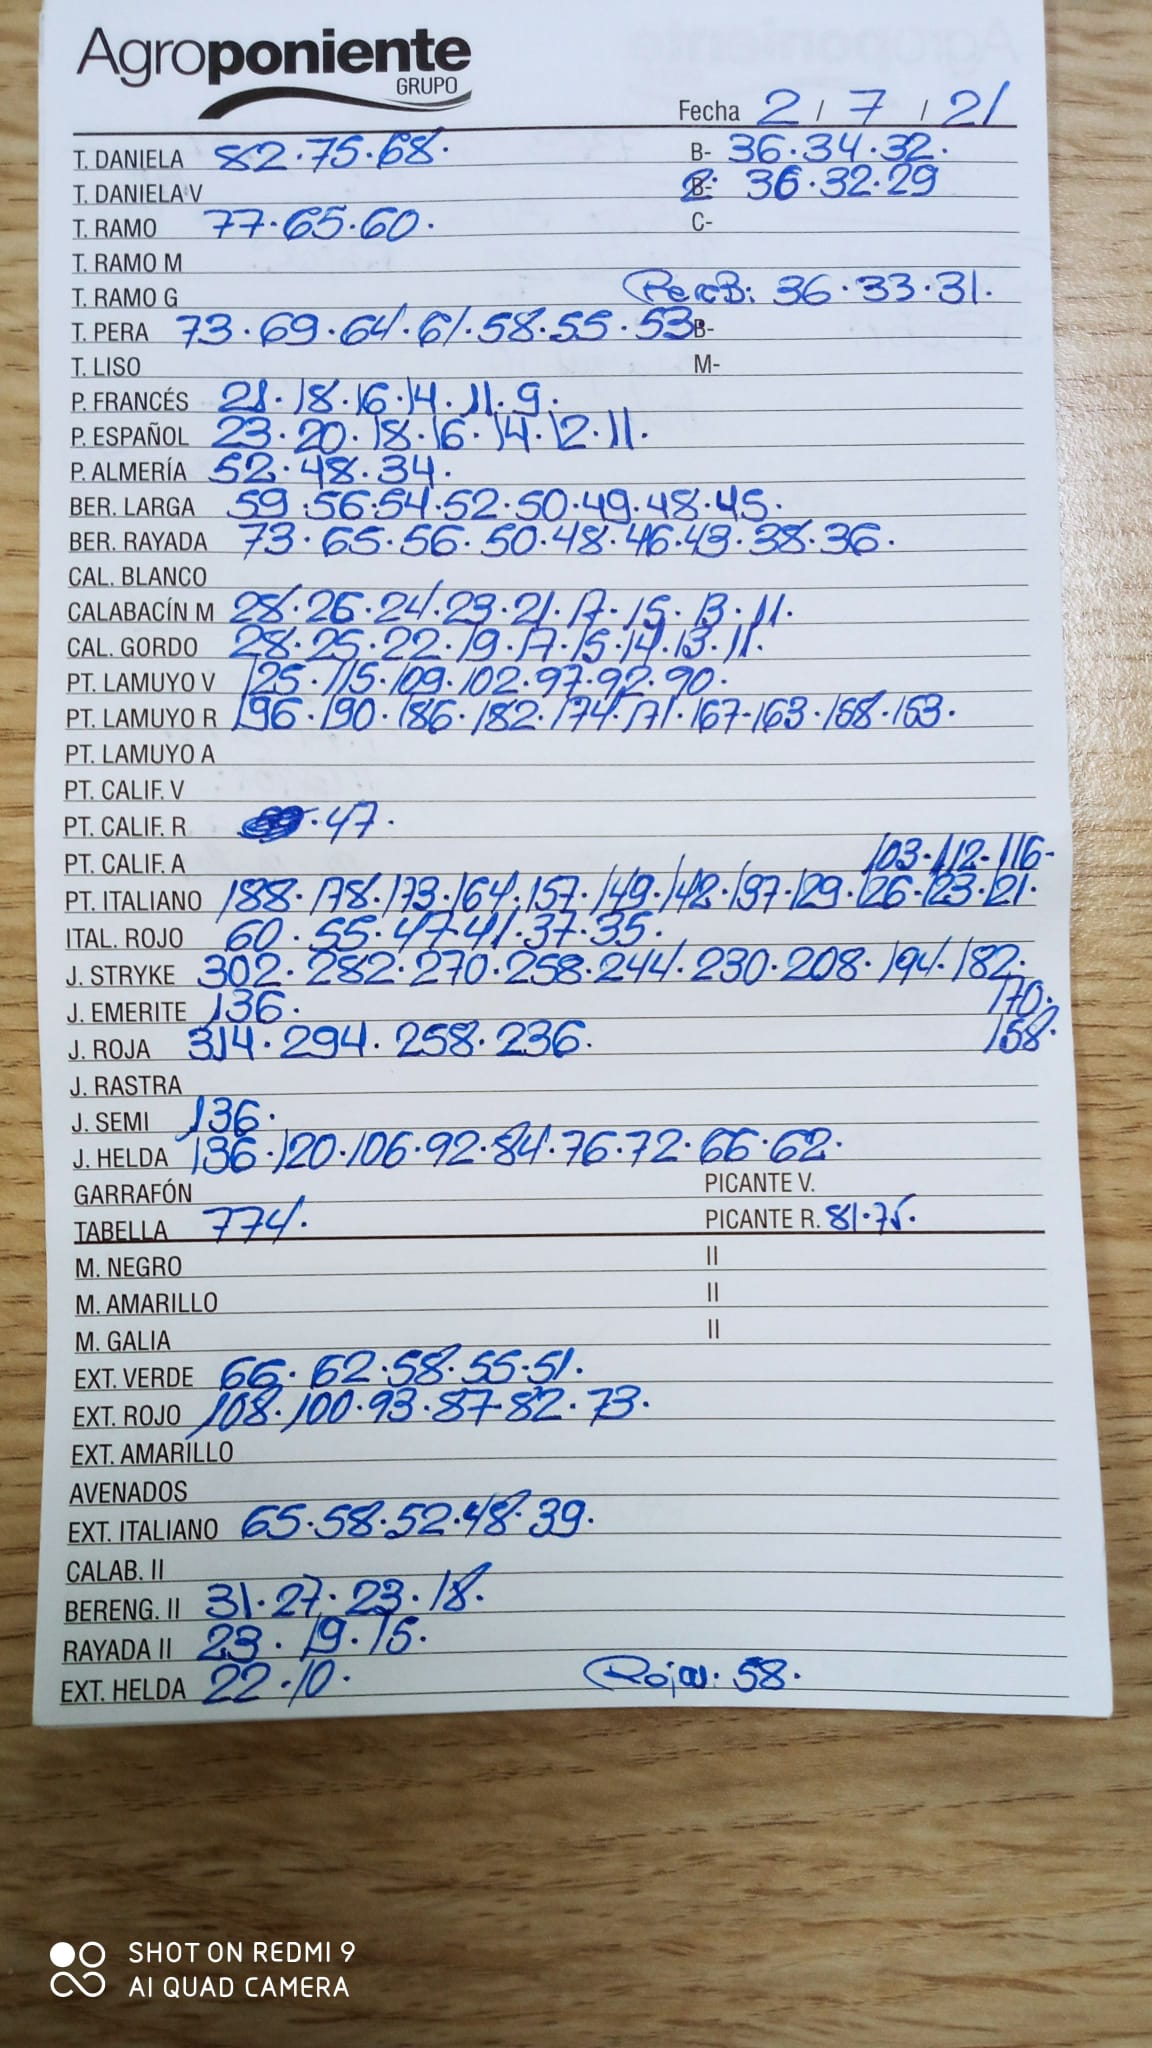 Agroponiente
GRUPO
Fecha 2 / 7 / 21
T. DANIELA 82.75.68. B- 36.34.32.
T. DANIELA V 36.32.29
T. RAMO 77.65.60. C-
T. RAMO M
T. RAMO G PeraB: 36.33.31.
T. PERA 73.69.64.61.58.55.53. B-
T. LISO M-
P. FRANCÉS 21.18.16.14.11.9.
P. ESPAÑOL 23.20.18.16.14.12.11.
P. ALMERÍA 52.48.34.
BER. LARGA 59.56.54.52.50.49.48.45.
BER. RAYADA 73.65.56.50.48.46.43.38.36.
CAL. BLANCO
CALABACÍN M 28.26.24.23.21.17.15.13.11.
CAL. GORDO 28.25.22.19.17.15.14.13.11.
PT. LAMUYO V 125.115.109.102.97.92.90.
PT. LAMUYO R 196.190.186.182.174.171.167.163.158.153.
PT. LAMUYO A
PT. CALIF. V
PT. CALIF. R .47.
PT. CALIF. A 103.112.116-
PT. ITALIANO 188.178.173.164.157.149.142.137.129.126.123.121.
ITAL. ROJO 60.55.47.41.37.35.
J. STRYKE 302.282.270.258.244.230.208.194.182.
J. EMERITE 136. 170.
J. ROJA 314.294.258.236. 158.
J. RASTRA
J. SEMI 136.
J. HELDA 136.120.106.92.84.76.72.66.62.
GARRAFÓN PICANTE V.
TABELLA 774. PICANTE R. 81.75.
M. NEGRO II
M. AMARILLO II
M. GALIA II
EXT. VERDE 66.62.58.55.51.
EXT. ROJO 108.100.93.87.82.73.
EXT. AMARILLO
AVENADOS
EXT. ITALIANO 65.58.52.48.39.
CALAB. II
BERENG. II 31.27.23.18.
RAYADA II 23.19.15.
EXT. HELDA 22.10. Roja: 58.
SHOT ON REDMI 9
AI QUAD CAMERA